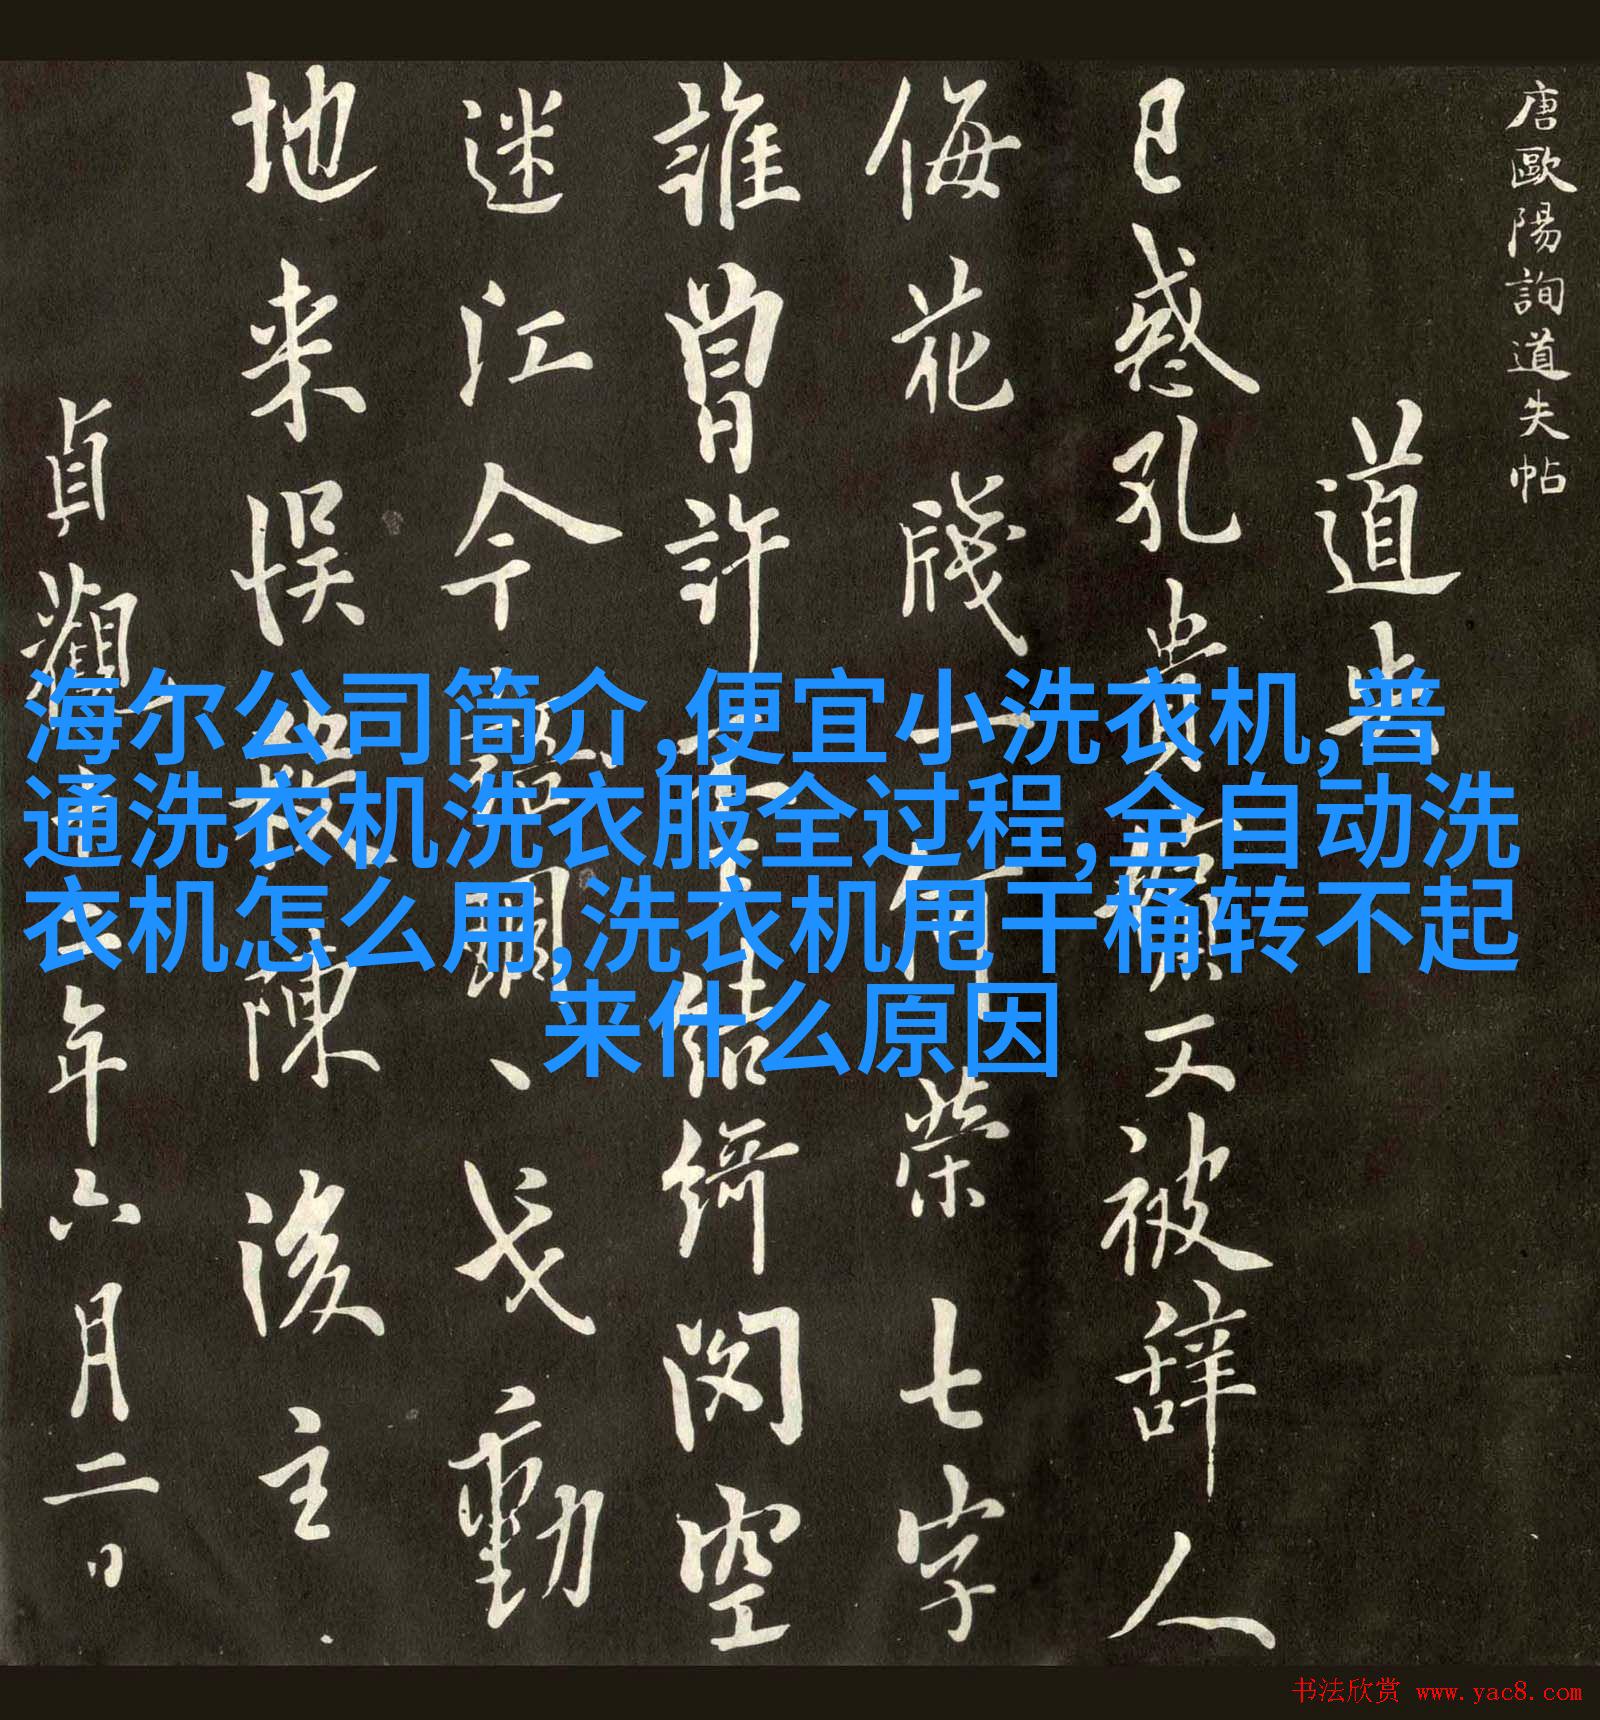 唐歐陽詢道失帖
道失
已惑孔貴又被辭人
侮花牋榮七字
誰曾許結綺閣空
迷江令戈動
地来悮陳後主
貞觀年六月二日
海尔公司简介,便宜小洗衣机,普
通洗衣机洗衣服全过程,全自动洗
衣机怎么用,洗衣机甩干桶转不起
来什么原因
书法欣赏 www.yac8.com